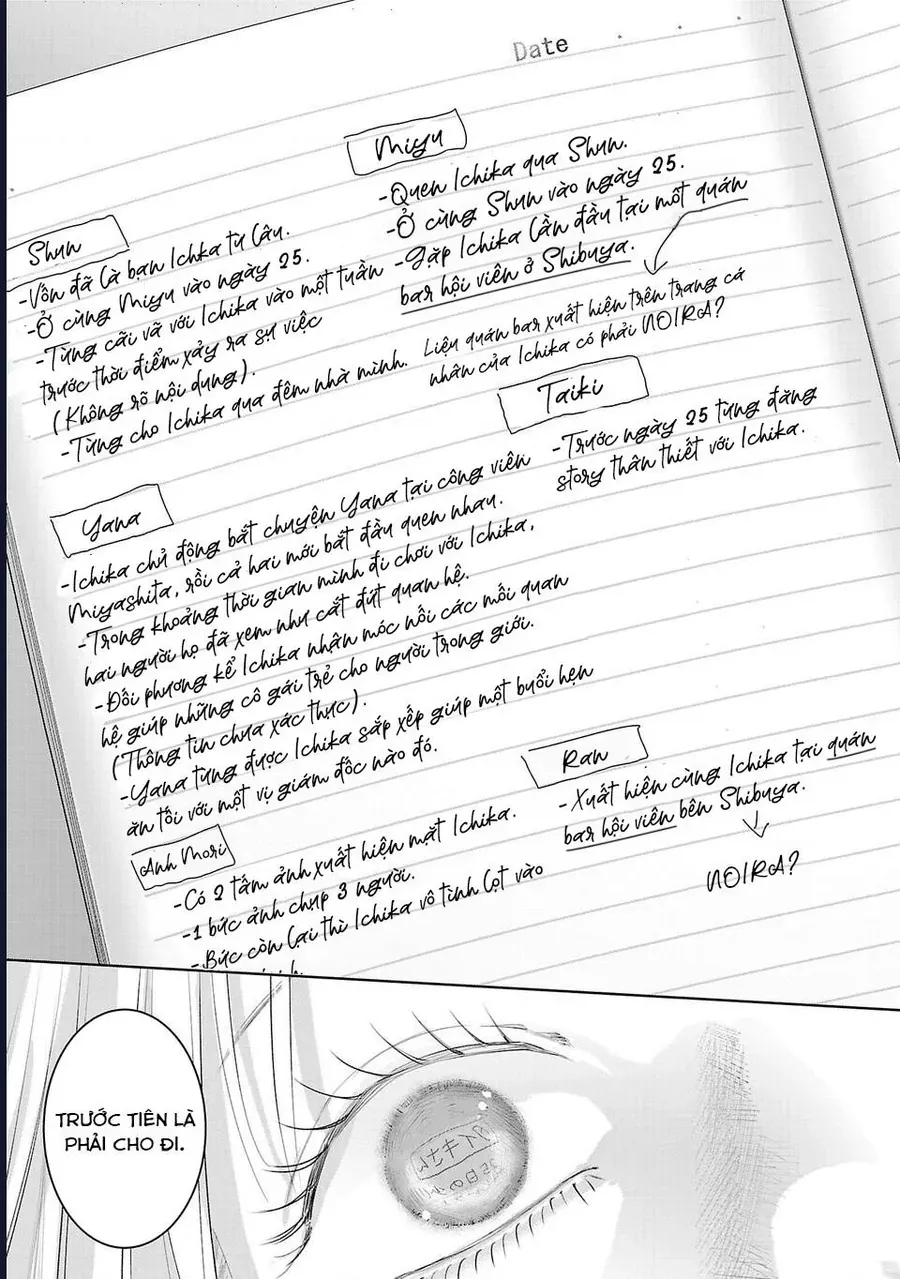 Date
Miyu
-Quen Ichika qua Shun.
-Ở cùng Shun vào ngày 25.
-Gặp Ichika lần đầu tại một quán
bar hội viên ở Shibuya.
Liệu quán bar xuất hiện trên trang cá
nhân của Ichika có phải NOIRA?
Shun
-Vốn đã là bạn Ichka từ lâu.
-Ở cùng Miyu vào ngày 25.
-Từng cãi vã với Ichika vào một tuần
trước thời điểm xảy ra sự việc
(Không rõ nội dung).
-Từng cho Ichika qua đêm nhà mình.
Taiki
-Trước ngày 25 từng đăng
story thân thiết với Ichika.
Yana
-Ichika chủ động bắt chuyện Yana tại công viên
Miyashita, rồi cả hai mới bắt đầu quen nhau.
-Trong khoảng thời gian mình đi chơi với Ichika,
hai người họ đã xem như cắt đứt quan hệ.
-Đối phương kể Ichika nhận móc nối các mối quan
hệ giúp những cô gái trẻ cho người trong giới.
(Thông tin chưa xác thực).
-Yana từng được Ichika sắp xếp giúp một buổi hẹn
ăn tối với một vị giám đốc nào đó.
Ran
-Xuất hiện cùng Ichika tại quán
bar hội viên bên Shibuya.
NOIRA?
Anh Mori
-Có 2 tấm ảnh xuất hiện mặt Ichika.
-1 bức ảnh chụp 3 người.
-Bức còn lại thì Ichika vô tình lọt vào
TRƯỚC TIÊN LÀ
PHẢI CHO ĐI.
タイキさん